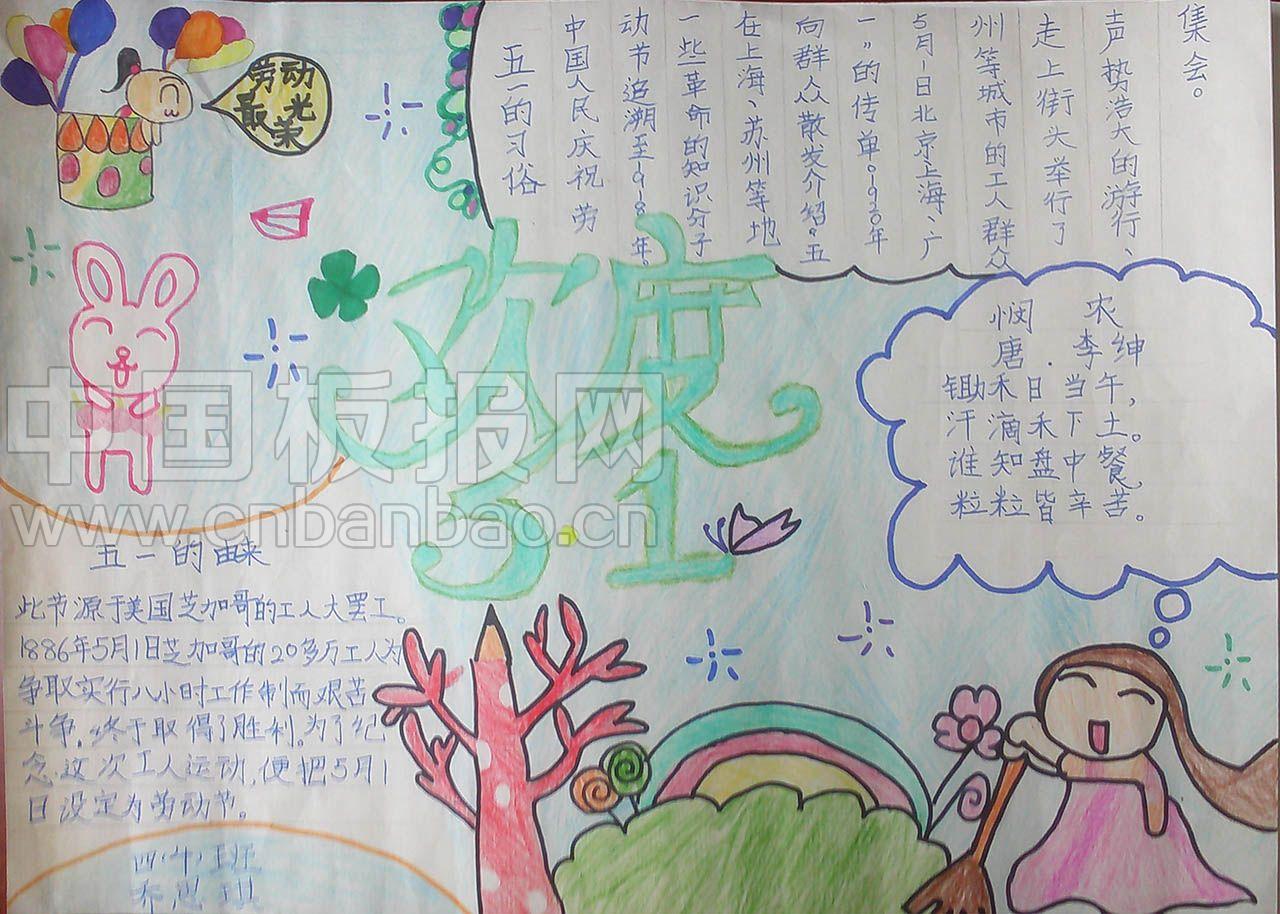 劳动
最光
荣
五一的习俗
中国人民庆祝劳
动节追溯至1918年。
一些革命的知识分子
在上海、苏州等地
向群众散发介绍“五
一”的传单。1920年
5月1日北京上海、广
州等城市的工人群众
走上街头举行了
声势浩大的游行、
集会。
欢度
5.1
悯 农
唐.李绅
锄禾日当午，
汗滴禾下土。
谁知盘中餐，
粒粒皆辛苦。
中国板报网
www.cnbanbao.cn
五一的由来
此节源于美国芝加哥的工人大罢工。
1886年5月1日芝加哥的20多万工人为
争取实行八小时工作制而艰苦
斗争，终于取得了胜利。为了纪
念这次工人运动，便把5月1
日设定为劳动节。
乔思琪